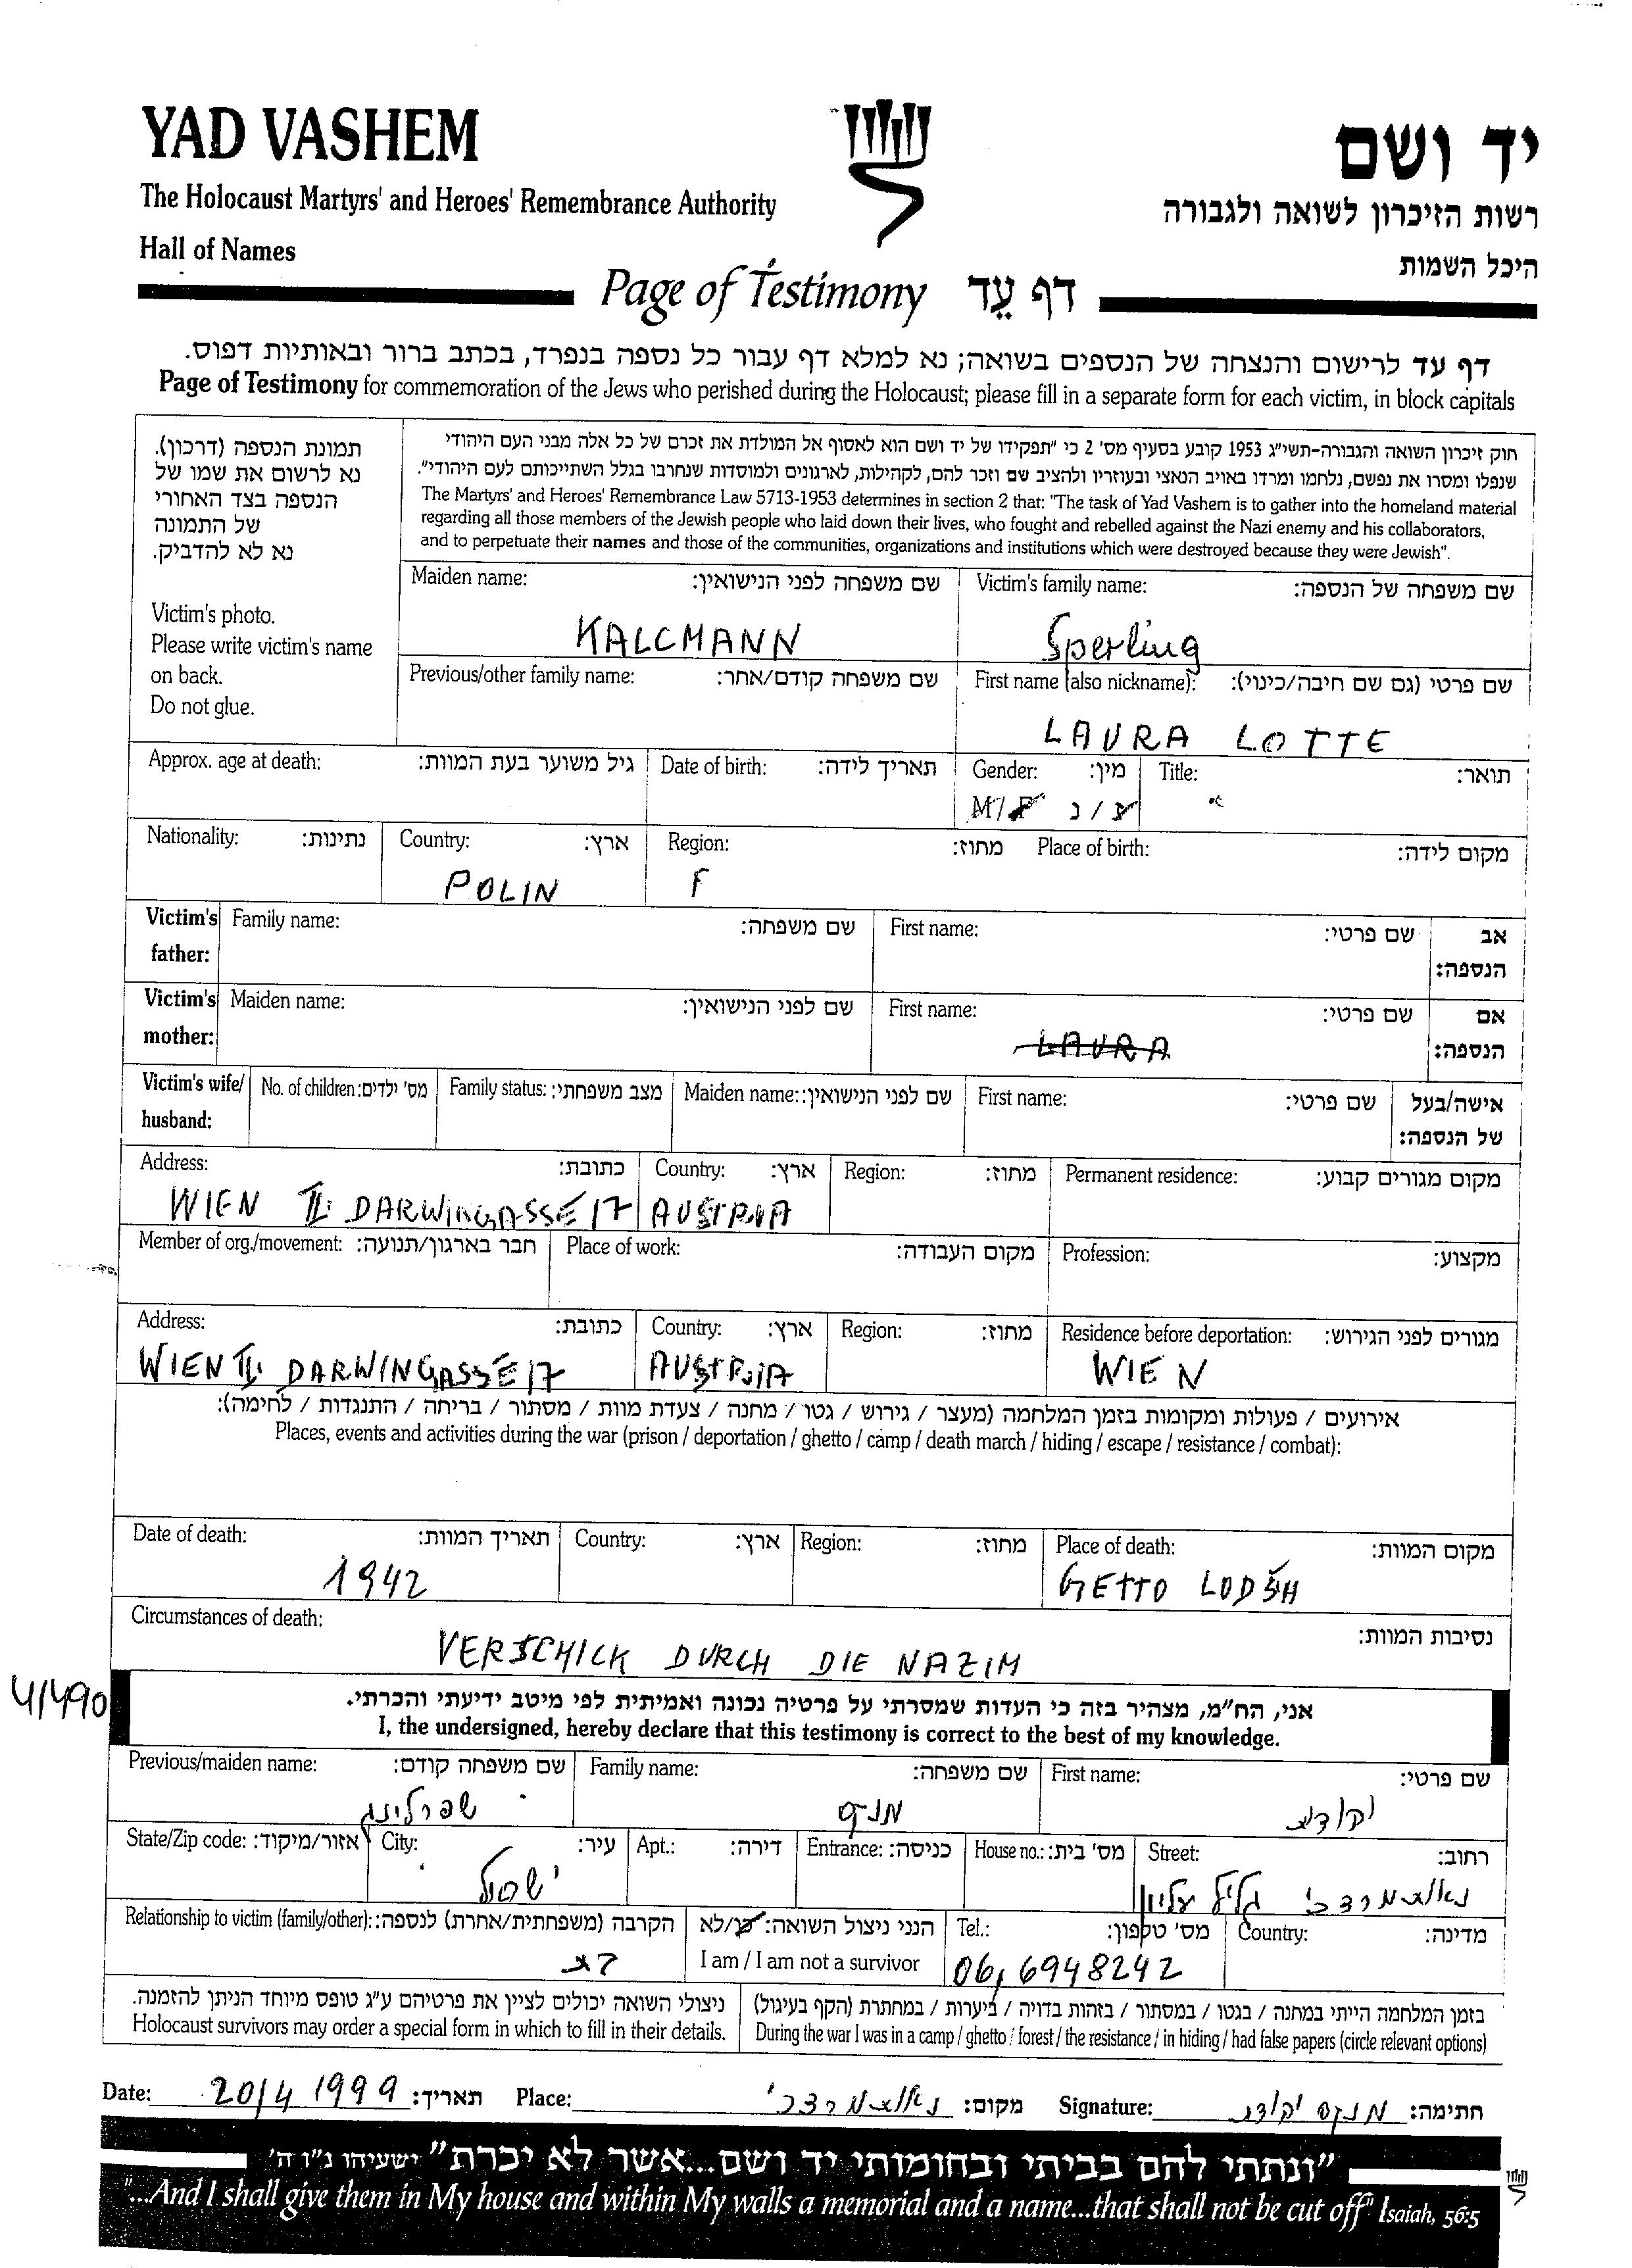 YAD VASHEM
יד ושם
The Holocaust Martyrs' and Heroes' Remembrance Authority
רשות הזיכרון לשואה ולגבורה
Hall of Names
היכל השמות
Page of Testimony דף עֵד
דף עד לרישום והנצחה של הנספים בשואה; נא למלא דף עבור כל נספה בנפרד, בכתב ברור ובאותיות דפוס.
Page of Testimony for commemoration of the Jews who perished during the Holocaust; please fill in a separate form for each victim, in block capitals
תמונת הנספה (דרכון).
נא לרשום את שמו של
הנספה בצד האחורי
של התמונה
נא לא להדביק.
Victim's photo.
Please write victim's name
on back.
Do not glue.
חוק זיכרון השואה והגבורה-תשי"ג 1953 קובע בסעיף מס' 2 כי "תפקידו של יד ושם הוא לאסוף אל המולדת את זכרם של כל אלה מבני העם היהודי
שנפלו ומסרו את נפשם, נלחמו ומרדו באויב הנאצי ובעוזריו ולהציב שם וזכר להם, לקהילות, לארגונים ולמוסדות שנחרבו בגלל השתייכותם לעם היהודי".
The Martyrs' and Heroes' Remembrance Law 5713-1953 determines in section 2 that: "The task of Yad Vashem is to gather into the homeland material
regarding all those members of the Jewish people who laid down their lives, who fought and rebelled against the Nazi enemy and his collaborators,
and to perpetuate their names and those of the communities, organizations and institutions which were destroyed because they were Jewish".
Maiden name: שם משפחה לפני הנישואין: Victim's family name: שם משפחה של הנספה:
KALCMANN Sperling
Previous/other family name: שם משפחה קודם/אחר: First name (also nickname): שם פרטי (גם שם חיבה/כינוי):
LAURA LOTTE
Approx. age at death: גיל משוער בעת המוות: Date of birth: תאריך לידה: Gender: מין: Title: תואר:
M/F ז/נ
Nationality: נתינות: Country: ארץ: Region: מחוז: Place of birth: מקום לידה:
POLIN F
Victim's father: Family name: שם משפחה: First name: שם פרטי: אב הנספה:
Victim's mother: Maiden name: שם לפני הנישואין: First name: שם פרטי: אם הנספה:
LAURA
Victim's wife/ husband: No. of children: מס' ילדים: Family status: מצב משפחתי: Maiden name: שם לפני הנישואין: First name: שם פרטי: אישה/בעל של הנספה:
Address: כתובת: Country: ארץ: Region: מחוז: Permanent residence: מקום מגורים קבוע:
WIEN II. DARWINGASSE 17 AUSTRIA
Member of org./movement: חבר בארגון/תנועה: Place of work: מקום העבודה: Profession: מקצוע:
Address: כתובת: Country: ארץ: Region: מחוז: Residence before deportation: מגורים לפני הגירוש:
WIEN II. DARWINGASSE 17 AUSTRIA WIEN
אירועים / פעולות ומקומות בזמן המלחמה (מעצר / גירוש / גטו / מחנה / צעדת מוות / מסתור / בריחה / התנגדות / לחימה):
Places, events and activities during the war (prison / deportation / ghetto / camp / death march / hiding / escape / resistance / combat):
Date of death: תאריך המוות: Country: ארץ: Region: מחוז: Place of death: מקום המוות:
1942 GETTO LODSH
Circumstances of death: נסיבות המוות:
VERSCHICK DURCH DIE NAZIM
4/490
אני, הח"מ, מצהיר בזה כי העדות שמסרתי על פרטיה נכונה ואמיתית לפי מיטב ידיעתי והכרתי.
I, the undersigned, hereby declare that this testimony is correct to the best of my knowledge.
Previous/maiden name: שם משפחה קודם: Family name: שם משפחה: First name: שם פרטי:
שפרלינג
State/Zip code: אזור/מיקוד: City: עיר: Apt.: דירה: Entrance: כניסה: House no.: מס' בית: Street: רחוב:
גליל עליון
Relationship to victim (family/other): הקרבה (משפחתית/אחרת) לנספה: הנני ניצול השואה: כן/לא Tel.: מס' טלפון: Country: מדינה:
I am / I am not a survivor
06, 6948242
ניצולי השואה יכולים לציין את פרטיהם ע"ג טופס מיוחד הניתן להזמנה.
Holocaust survivors may order a special form in which to fill in their details.
בזמן המלחמה הייתי במחנה / בגטו / במסתור / בזהות בדויה / ביערות / במחתרת (הקף בעיגול)
During the war I was in a camp / ghetto / forest / the resistance / in hiding / had false papers (circle relevant options)
Date: 20/4 1999 תאריך: Place: מקום: Signature: חתימה:
"ונתתי להם בביתי ובחומותי יד ושם...אשר לא יכרת" ישעיהו נ"ו ה'
"...And I shall give them in My house and within My walls a memorial and a name...that shall not be cut off" Isaiah, 56:5